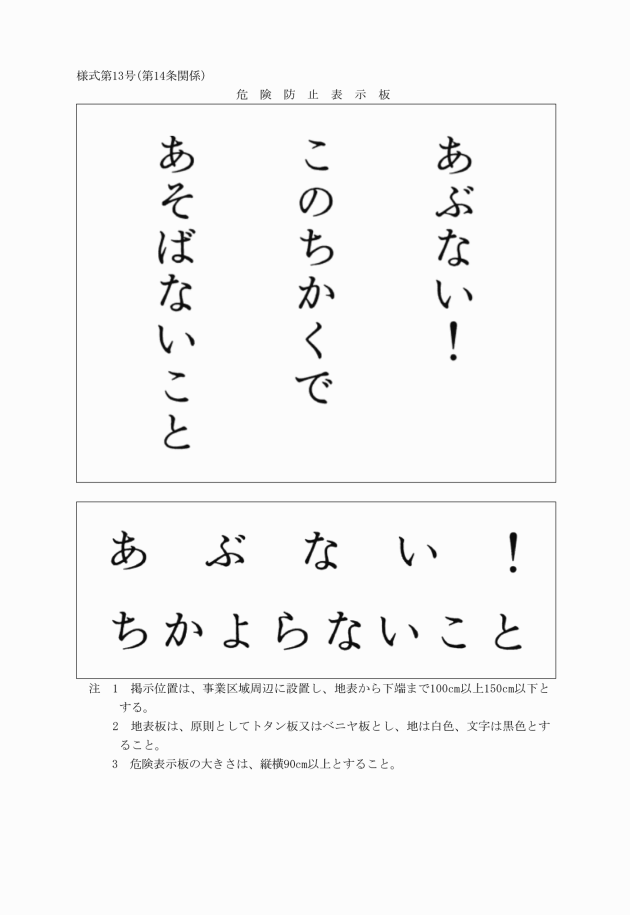 様式第13号(第14条関係)
危険防止表示板
あぶない！
このちかくで
あそばないこと
あぶない！
ちかよらないこと
注　1　掲示位置は、事業区域周辺に設置し、地表から下端まで100cm以上150cm以下と
する。
2　地表板は、原則としてトタン板又はベニヤ板とし、地は白色、文字は黒色とす
ること。
3　危険表示板の大きさは、縦横90cm以上とすること。